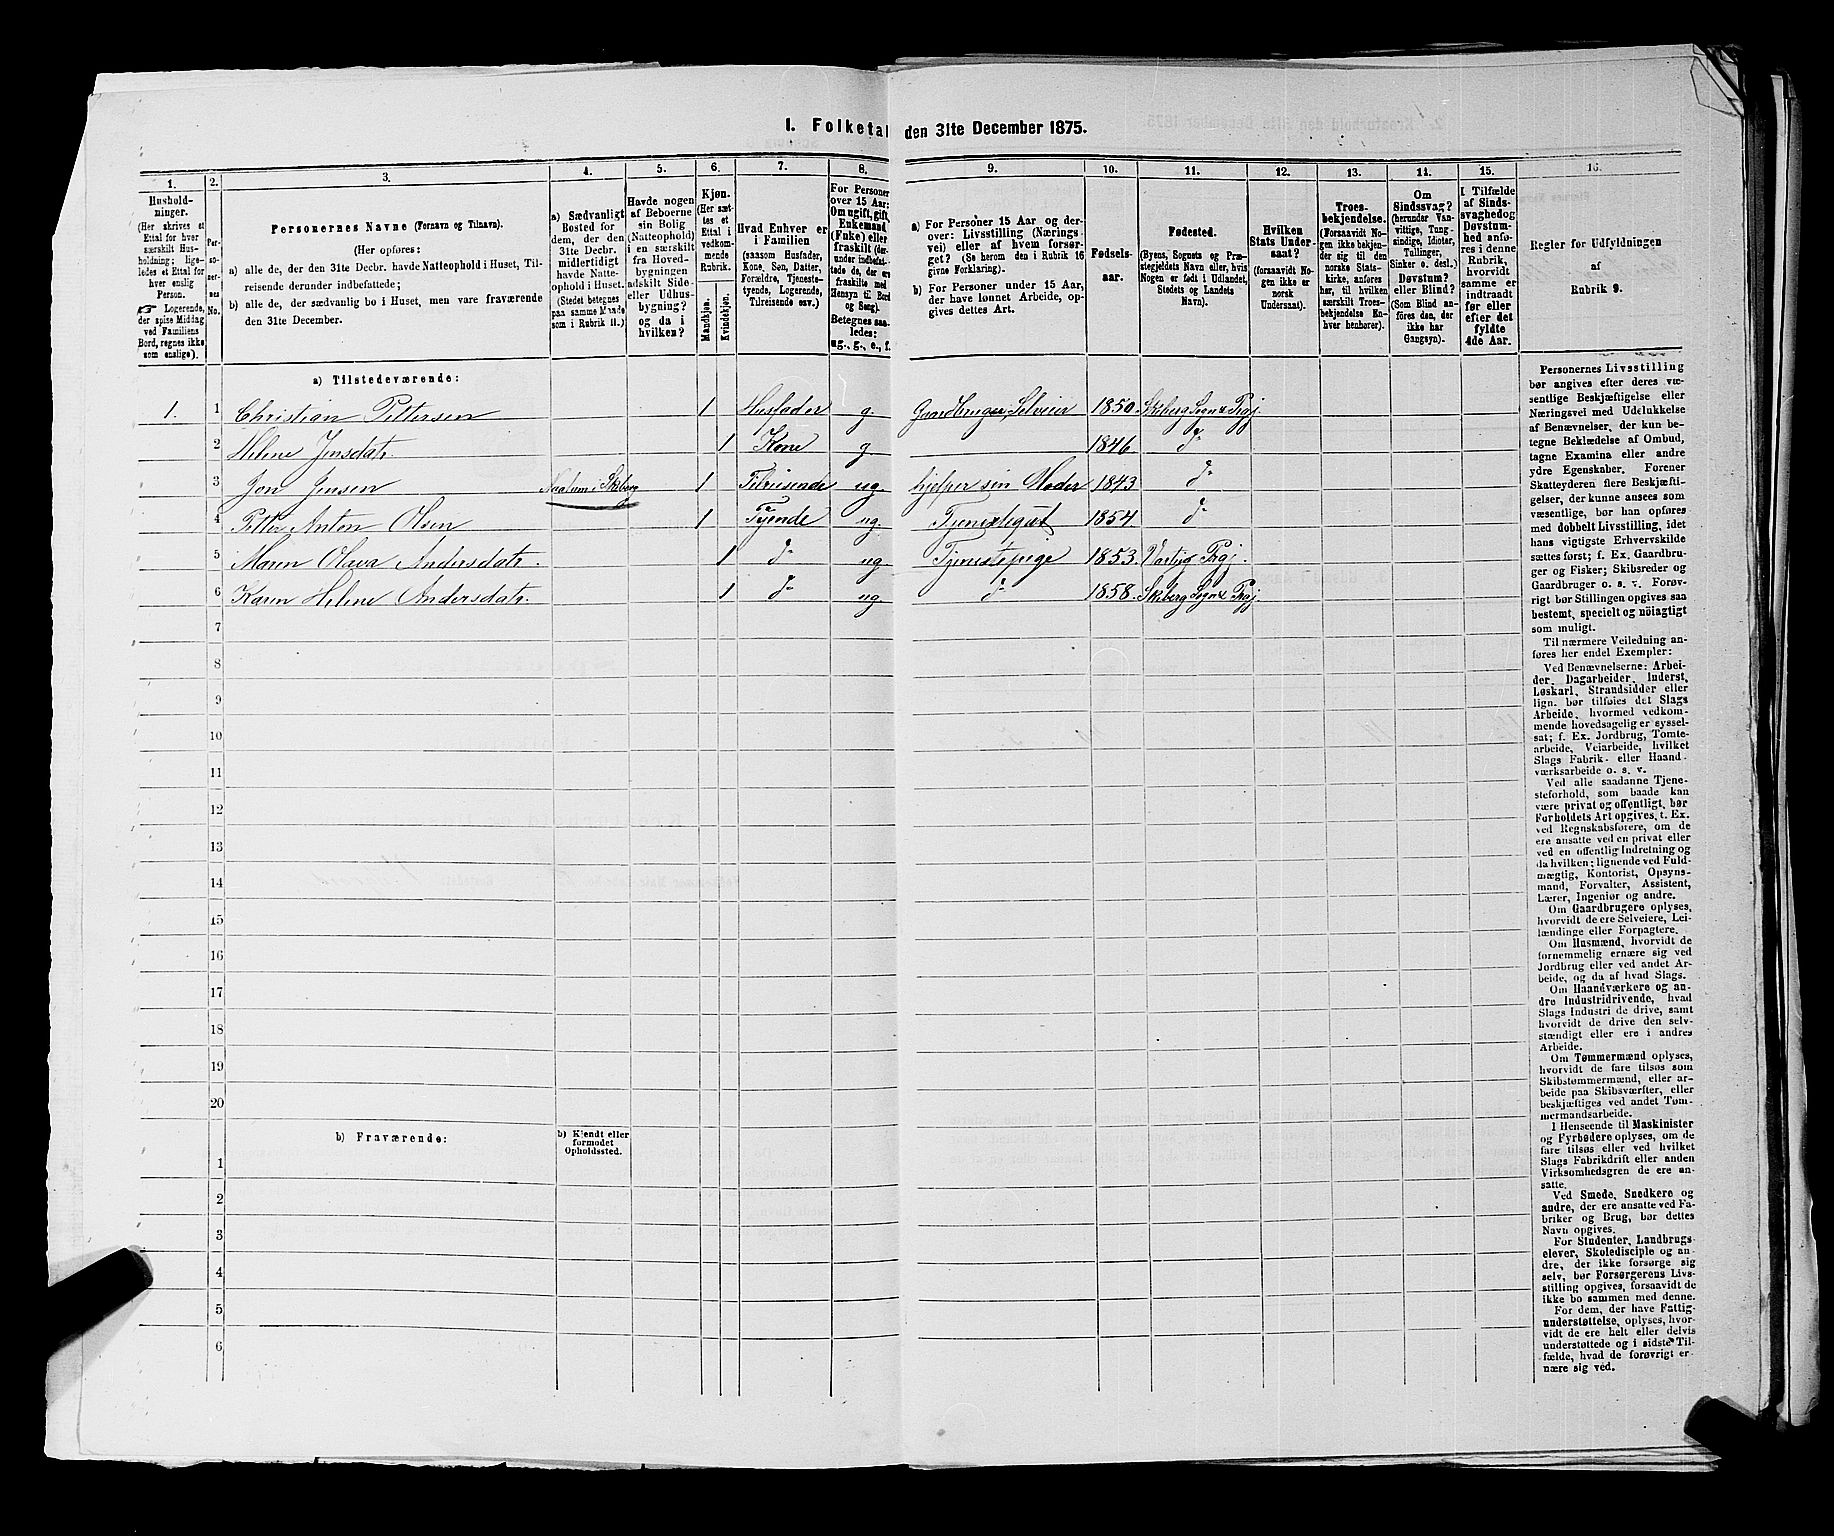 I. Folketal den 31te December 1875.
1.
Hushold-
ninger.
(Her skrives et
Ettal for hver
særskilt Hus-
holdning; lige-
ledes et Ettal for
hver enslig
Person.
☞ Logerende,
der spise Middag
ved Familiens
Bord, regnes ikke
som enslige).
2.
Per-
so-
ner-
nes
No.
3.
Personernes Navne (Fornavn og Tilnavn).
(Her opføres:
a) alle de, der den 31te Decbr. havde Natteophold i Huset, Til-
reisende derunder indbefattede;
b) alle de, der sædvanlig bo i Huset, men vare fraværende
den 31te December.
4.
a) Sædvanligt
Bosted for
dem, der den
31te Decbr.
midlertidigt
havde Natte-
ophold i Huset.
(Stedet betegnes
paa samme Maade
som i Rubrik 11.)
5.
Havde nogen
af Beboerne
sin Bolig
(Natteophold)
i en særskilt
fra Hoved-
bygningen
adskilt Side-
eller Udhus-
bygning?
og da i
hvilken?
6.
Kjøn.
(Her sæt-
tes et
Ettal i
vedkom-
mende
Rubrik.
Mandkjøn.
Kvindekjøn.
7.
Hvad Enhver er
i Familien
(saasom Husfader,
Kone, Søn, Datter,
Forældre, Tjeneste-
tyende, Logerende,
Tilreisende osv.)
8.
For Personer
over 15 Aar:
Om ugift, gift,
Enkemand
(Enke) eller
fraskilt (der-
under indbefat-
tede de, der ere
fraskilte med
Hensyn til Bord
og Seng).
Betegnes saa-
ledes:
ug., g., e., f.
9.
a) For Personer 15 Aar og der-
over: Livsstilling (Nærings-
vei) eller af hvem forsør-
get? (Se herom den i Rubrik 16
givne Forklaring).
b) For Personer under 15 Aar,
der have lønnet Arbeide, op-
gives dettes Art.
10.
Fødsels-
aar.
11.
Fødested.
(Byens, Sognets og Præ-
stegjeldets Navn eller, hvis
Nogen er født i Udlandet,
Stedets og Landets
Navn).
12.
Hvilken
Stats Under-
saat?
(forsaavidt No-
gen ikke er
norsk
Undersaat).
13.
Troes-
bekjendelse.
(Forsaavidt No-
gen ikke bekjen-
der sig til den
norske Stats-
kirke, anføres
her, til hvilken
særskilt Troes-
bekjendelse En-
hver henhører).
14.
Om
Sindssvag?
(herunder Van-
vittige, Tung-
sindige, Idioter,
Tullinger,
Sinker o. desl.)
Døvstum?
eller Blind?
(Som Blind an-
føres den, der
ikke har
Gangsyn).
15.
I Tilfælde
af Sinds-
svaghed og
Døvstum-
hed anfø-
res i denne
Rubrik,
hvorvidt
samme er
indtraadt
før eller
efter det
fyldte
4de Aar.
16.
Regler for Udfyldningen
af
Rubrik 9.
a) Tilstedeværende:
1. 1 Christian Pettersen 1 Husfader g. Gaardbruger, Selveier 1850. Skiberg Sogn & Prgj.
2 Helene Jensdatr. 1 Kone g. 1846 do
3 Jon Jensen i Skiberg 1 Tilreisende ug. hjelper sin Moder 1843 do
4 Petter Anton Olsen 1 Tyende ug. Tjenestegut 1854 do
5 Maren Olava Andersdatr. 1 do ug. Tjenestepige 1853. Varteig Prgj.
6 Karen Helene Andersdatr. 1 do ug. do 1858. Skiberg Sogn & Prgj.
7
8
9
10
11
12
13
14
15
16
17
18
19
20
b) Fraværende:
b) Kjendt eller
formodet
Opholdssted.
1
2
3
4
5
6
Personernes Livsstilling
bør angives efter deres væ-
sentlige Beskjæftigelse eller
Næringsvei med Udelukkelse
af Benævnelser, der kun be-
tegne Beklædelse af Ombud,
tagne Examina eller andre
ydre Egenskaber. Forener
Skatteyderen flere Beskjæfti-
gelser, der kunne ansees som
væsentlige, bør han opføres
med dobbelt Livsstilling, idet
hans vigtigste Erhvervskilde
sættes først; f. Ex. Gaardbru-
ger og Fisker; Skibsreder og
Gaardbruger o. s. v. Forøv-
rigt bør Stillingen opgives saa
bestemt, specielt og nöiagtigt
som muligt.
Til nærmere Veiledning an-
føres her endel Exempler:
Ved Benævnelserne: Arbei-
der, Dagarbeider, Inderst,
Løskarl, Strandsidder eller
lign. bør tilføies det Slags
Arbeide, hvormed vedkom-
mende hovedsagelig er syssel-
sat; f. Ex. Jordbrug, Tomte-
arbeide, Veiarbeide, hvilket
Slags Fabrik- eller Haand-
værksarbeide o. s. v.
Ved alle saadanne Tjene-
steforhold, som baade kan
være privat og offentligt, bør
Forholdets Art opgives, t. Ex.
ved Regnskabsførere, om de
ere ansatte ved en privat eller
ved en offentlig Indretning og
da hvilken; lignende ved Fuld-
mægtig, Kontorist, Opsyns-
mand, Forvalter, Assistent,
Lærer, Ingeniør og andre.
Om Gaardbrugere oplyses,
hvorvidt de ere Selveiere, Lei-
lændinge eller Forpagtere.
Om Husmænd, hvorvidt de
fornemmelig ernære sig ved
Jordbrug eller ved andet Ar-
beide, og da af hvad Slags.
Om Haandværkere og an-
dre Industridrivende, hvad
Slags Industri de drive, samt
hvorvidt de drive den selv-
stændigt eller ere i andres
Arbeide.
Om Tømmermænd oplyses,
hvorvidt de fare tilsøs som
Skibstømmermænd, eller ar-
beide paa Skibsværfter, eller
beskjæftiges ved andet Tøm-
mermandsarbeide.
I Henseende til Maskinister
og Fyrbødere oplyses, om de
fare tilsøs eller ved hvilket
Slags Fabrikdrift eller anden
Virksomhedsgren de ere an-
satte.
Ved Smede, Snedkere og
andre, der ere ansatte ved Fa-
briker og Brug, bør dettes
Navn opgives.
For Studenter, Landbrugs-
elever, Skoledisciple og an-
dre, der ikke forsørge sig
selv, bør Forsørgerens Livs-
stilling opgives, forsaavidt de
ikke bo sammen med denne.
For dem, der have Fattig-
understøttelse, oplyses, hvor-
vidt de ere helt eller delvis
understøttede og i sidste Til-
fælde, hvad de forøvrigt er-
nære sig ved.